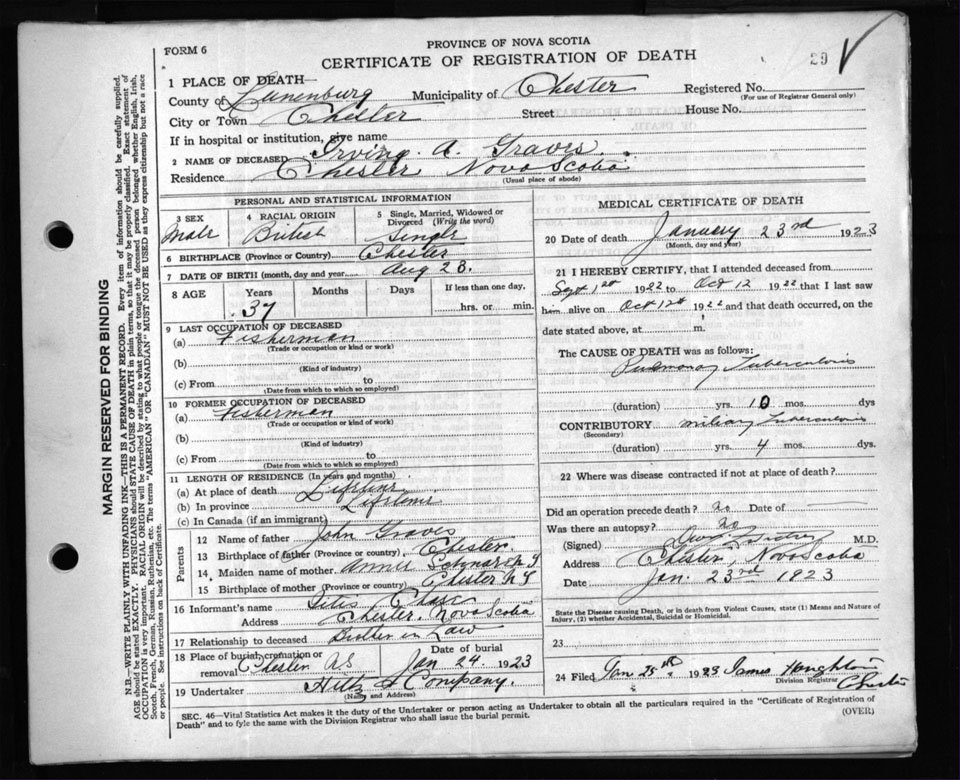 PROVINCE OF NOVA SCOTIA
FORM 6
CERTIFICATE OF REGISTRATION OF DEATH
29
1 PLACE OF DEATH—
County of Lunenburg Municipality of Chester Registered No.
(For use of Registrar General only)
City or Town Chester Street House No.
If in hospital or institution, give name
2 NAME OF DECEASED Irving A. Graves
Residence Chester Nova Scotia
(Usual place of abode)
PERSONAL AND STATISTICAL INFORMATION
3 SEX
Male
4 RACIAL ORIGIN
British
5 Single, Married, Widowed or Divorced (Write the word)
Single
6 BIRTHPLACE (Province or Country) Chester
7 DATE OF BIRTH (month, day and year) Aug 23.
8 AGE Years Months Days If less than one day,
37 hrs. or min.
9 LAST OCCUPATION OF DECEASED
(a) Fisherman
(Trade or occupation or kind or work)
(b)
(Kind of industry)
(c) From to
(Date from which to which so employed)
10 FORMER OCCUPATION OF DECEASED
(a) Fisherman
(Trade or occupation or kind of work)
(b)
(Kind of industry)
(c) From to
(Date from which to which so employed)
11 LENGTH OF RESIDENCE (In years and months)
(a) At place of death Lifetime
(b) In province Lifetime
(c) In Canada (if an immigrant)
Parents
12 Name of father John Graves
13 Birthplace of father (Province or country) Chester.
14 Maiden name of mother Annie
15 Birthplace of mother (Province or country) Chester N S
16 Informant's name Chase
Address Chester, Nova Scotia
17 Relationship to deceased Brother in Law
18 Place of burial, cremation or removal Chester NS
Date of burial
Jan 24. 1923
19 Undertaker Hiltz & Company.
(Name and Address)
MEDICAL CERTIFICATE OF DEATH
20 Date of death January 23rd 1923
(Month, day and year)
21 I HEREBY CERTIFY, that I attended deceased from
Sept 1st 1922 to Oct 12 1922 that I last saw
him alive on Oct 12th 1922 and that death occurred, on the
date stated above, at m.
The CAUSE OF DEATH was as follows:
Pulmonary Tuberculosis
(duration) yrs. 10 mos. dys
CONTRIBUTORY miliary Tuberculosis
(Secondary)
(duration) yrs. 4 mos. dys.
22 Where was disease contracted if not at place of death?
Did an operation precede death? no Date of —
Was there an autopsy? no
(Signed) M.D.
Address Chester, Nova Scotia
Date Jan. 23rd 1923
State the Disease causing Death, or in death from Violent Causes, state (1) Means and Nature of
Injury, (2) whether Accidental, Suicidal or Homicidal.
23
24 Filed Jan 25th 1923 James Houghton
Division Registrar
Chester
SEC. 46—Vital Statistics Act makes it the duty of the Undertaker or person acting as Undertaker to obtain all the particulars required in the "Certificate of Registration of
Death" and to fyle the same with the Division Registrar who shall issue the burial permit.
(OVER)
MARGIN RESERVED FOR BINDING
N.B.—WRITE PLAINLY WITH UNFADING INK—THIS IS A PERMANENT RECORD. Every item of information should be carefully supplied.
AGE should be stated EXACTLY. PHYSICIANS should STATE CAUSE OF DEATH in plain terms, so that it may be properly classified. Exact statement of
OCCUPATION is very important. RACIAL ORIGIN will be described by stating to what people or tongue the deceased person belonged whether English, Irish,
Scotch, French, German, Russian, Ruthenian, etc. The terms "AMERICAN" OR "CANADIAN" MUST NOT BE USED as they express citizenship but not a race
or people. See instructions on back of Certificate.